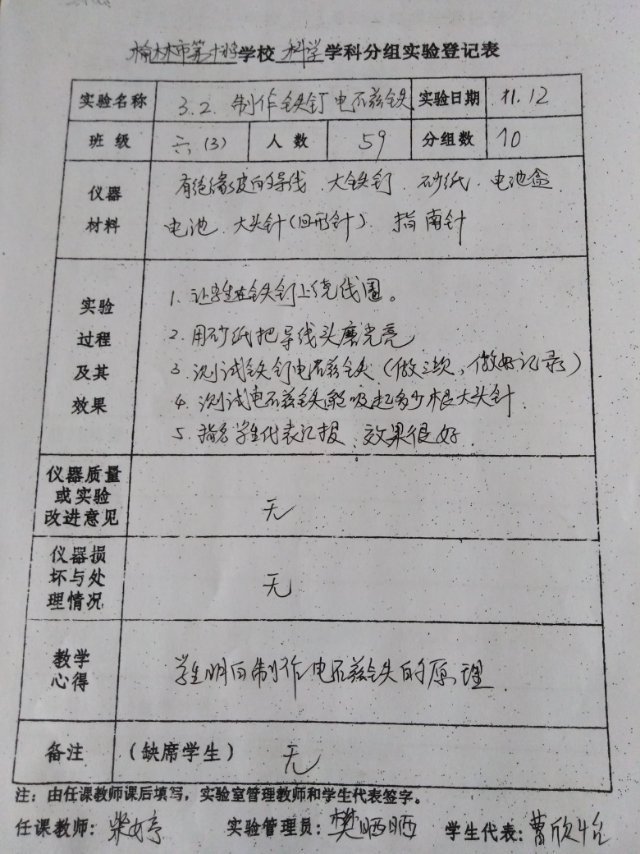 榆林市第十四学校 科学 学科分组实验登记表
实验名称 3.2. 制作铁钉电磁铁 实验日期 11.12
班级 六(3) 人数 59 分组数 10
仪器 有绝缘皮的导线、大铁钉、砂纸、电池盒
材料 电池、大头针(回形针)、指南针
实验 1. 让学生在铁钉上绕线圈。
过程 2. 用砂纸把导线头磨光亮
及其 3. 测试铁钉电磁铁(做三次,做好记录)
效果 4. 测试电磁铁能吸起多少根大头针.
5. 指名学生代表汇报、效果很好.
仪器质量
或实验
改进意见 无
仪器损
坏与处
理情况 无
教学
心得 学生明白制作电磁铁的原理.
备注 (缺席学生) 无
注:由任课教师课后填写,实验室管理教师和学生代表签字。
任课教师: 婷 实验管理员: 樊晒晒 学生代表: 曹欣怡